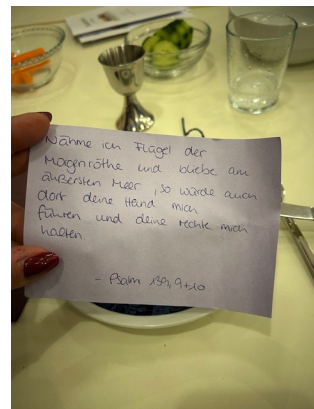 Nähme ich Flügel der
Morgenröthe und bliebe am
äußersten Meer, so würde auch
dort deine Hand mich
führen und deine rechte mich
halten.
- Psalm 139, 9+10